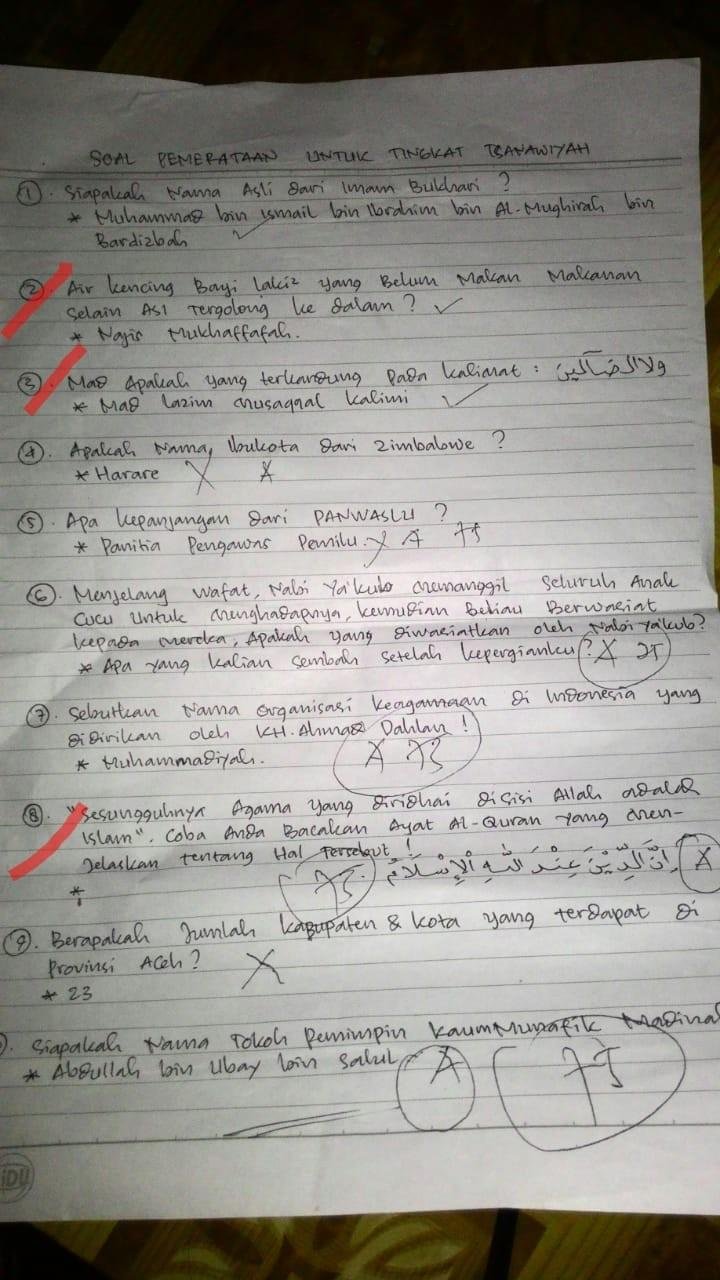 SOAL PEMERATAAN UNTUK TINGKAT TSANAWIYAH
1. Siapakah Nama Asli dari Imam Bukhari ?
* Muhammad bin Ismail bin Ibrahim bin Al-Mughirah bin
Bardizbah
2. Air kencing Bayi laki2 yang Belum Makan Makanan
selain ASI Tergolong ke dalam ?
* Najis Mukhaffafah.
3. Mad Apakah yang terkandung pada kalimat : ولا الضآلين
* Mad lazim musaqqal kalimi
4. Apakah Nama Ibukota dari Zimbabwe ?
* Harare X A
5. Apa kepanjangan dari PANWASLU ?
* Panitia Pengawas Pemilu. X A 75
6. Menjelang wafat, Nabi Ya'kub memanggil seluruh Anak
Cucu untuk menghadapnya, kemudian Beliau Berwasiat
kepada mereka, Apakah yang diwasiatkan oleh Nabi Ya'kub?
* Apa yang kalian sembah setelah kepergianku ? X 25
7. Sebutkan Nama Organisasi keagamaan di Indonesia yang
didirikan oleh KH. Ahmad Dahlan !
* Muhammadiyah. A 75
8. "Sesungguhnya Agama yang diridhai disisi Allah adalah
Islam". Coba Anda Bacakan Ayat Al-Quran yang men-
jelaskan tentang Hal Tersebut !
* 75 إِنَّ الدِّيْنَ عِنْدَ اللّٰهِ الْإِسْلَامُ A
9. Berapakah Jumlah kabupaten & kota yang terdapat di
Provinsi Aceh ? X
* 23
. Siapakah Nama Tokoh Pemimpin kaum Munafik Madinah
* Abdullah bin Ubay bin Salul A 75
iDU